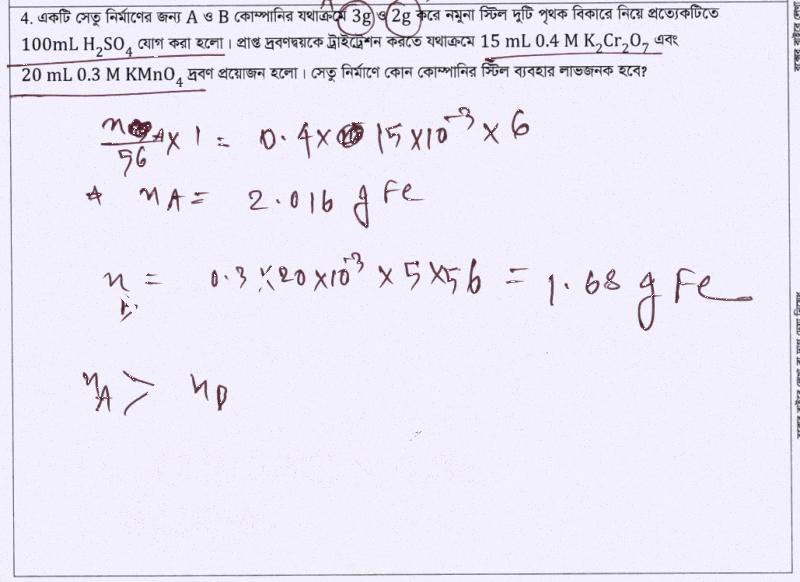 4. একটি সেতু নির্মাণের জন্য A ও B কোম্পানির যথাক্রমে 3g ও 2g করে নমুনা স্টিল দুটি পৃথক বিকারে নিয়ে প্রত্যেকটিতে
100mL H₂SO₄ যোগ করা হলো। প্রাপ্ত দ্রবণদ্বয়কে ট্রাইট্রেশন করতে যথাক্রমে 15 mL 0.4 M K₂Cr₂O₇ এবং
20 mL 0.3 M KMnO₄ দ্রবণ প্রয়োজন হলো। সেতু নির্মাণে কোন কোম্পানির স্টিল ব্যবহার লাভজনক হবে?
n A/56 × 1 = 0.4 × 15 × 10⁻³ × 6
n A = 2.016 g Fe
n = 0.3 × 20 × 10⁻³ × 5 × 56 = 1.68 g Fe
n A > n